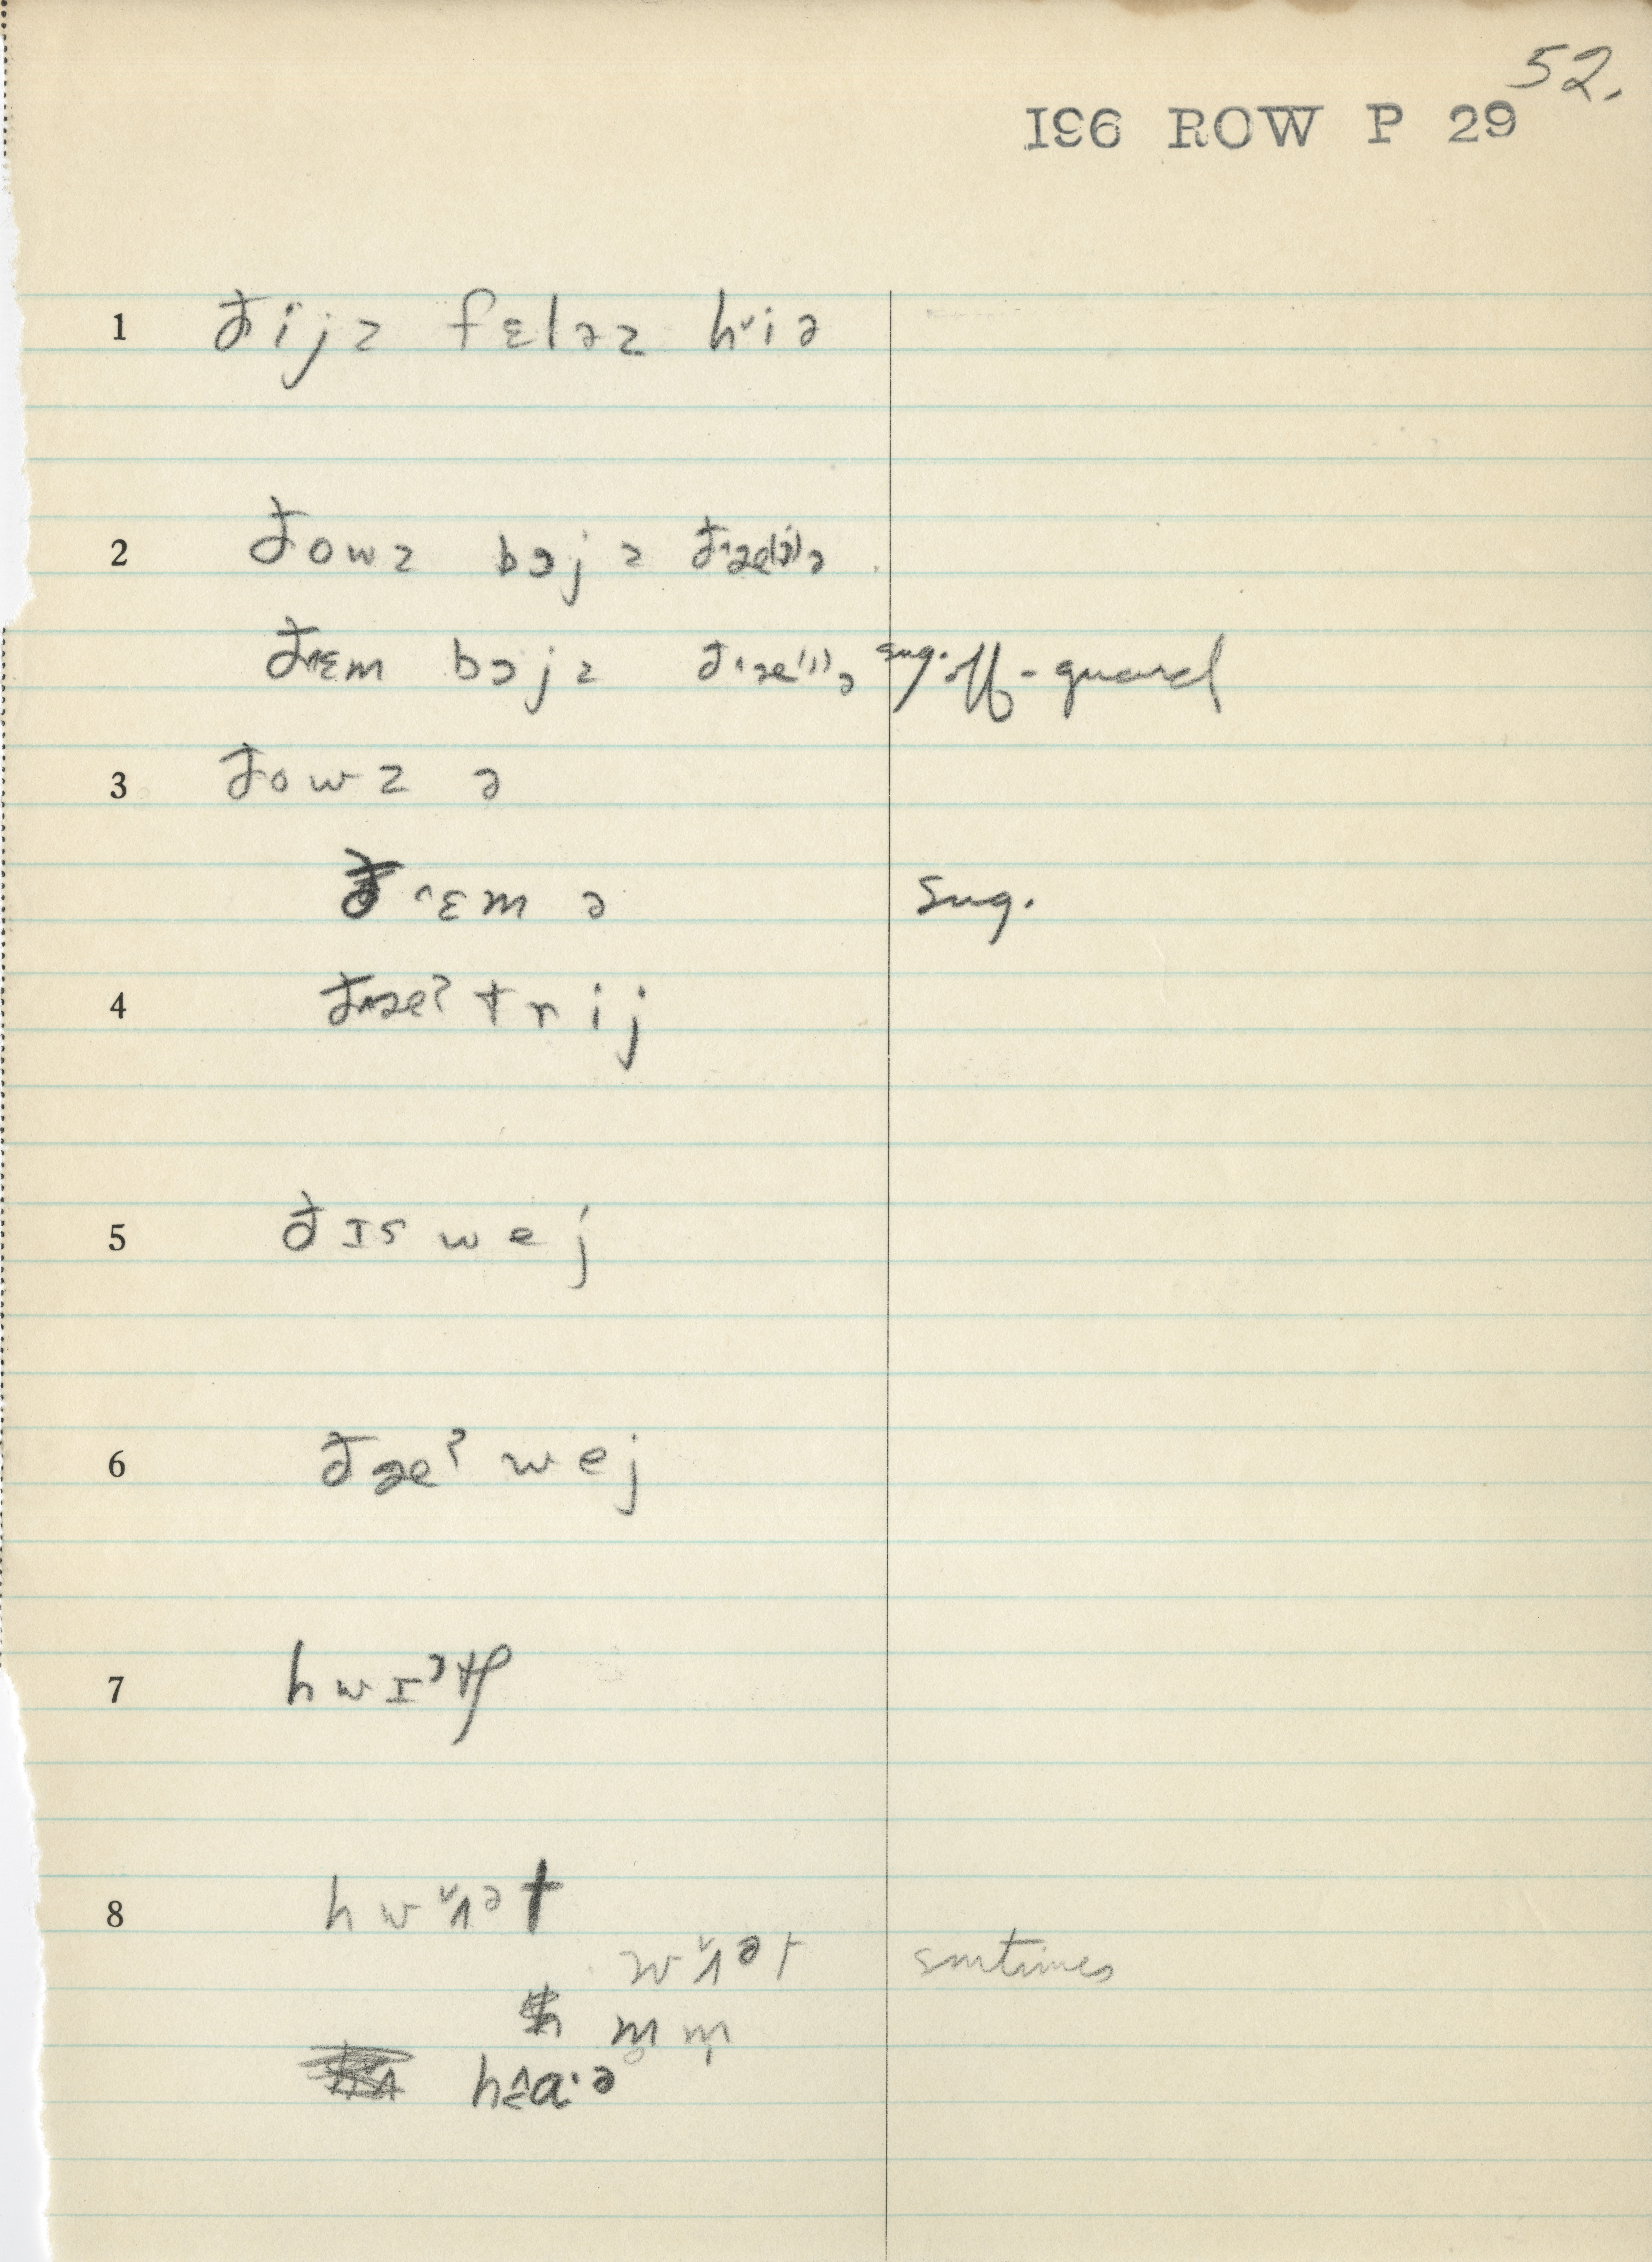 52.
I96 ROW P 29
1 ðijz fɛləz h˅iə
2 ðowz bɔjz ð˄æ(j)ə
ð˄ɛm bɔjz ð˄æ(j)ə sug. off-guard
3 ðowz ə
ð˄ɛm ə sug.
4 ð˄æˀtrij
5 ðɪswej
6 ðæˀwej
7 hwɪˀtʃ
8 hw˅ʌᵊt
w˅ʌᵊt smtimes
m̥ m̩